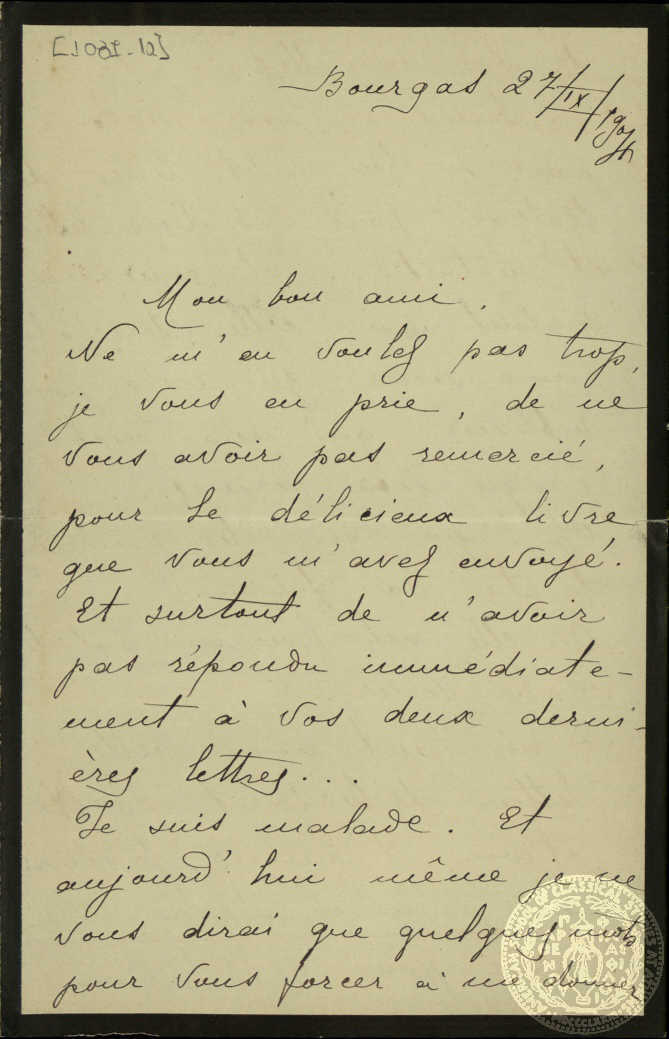 [1081-12]
Bourgas 27/IX/1904
Mon bon ami,
Ne m'en voulez pas trop,
je vous en prie, de ne
vous avoir pas remercié,
pour le délicieux livre
que vous m'avez envoyé.
Et surtout de n'avoir
pas répondu immédiate-
ment à vos deux derni-
ères lettres...
Je suis malade. Et
aujourd'hui même je ne
vous dirai que quelques mots
pour vous forcer à me donner